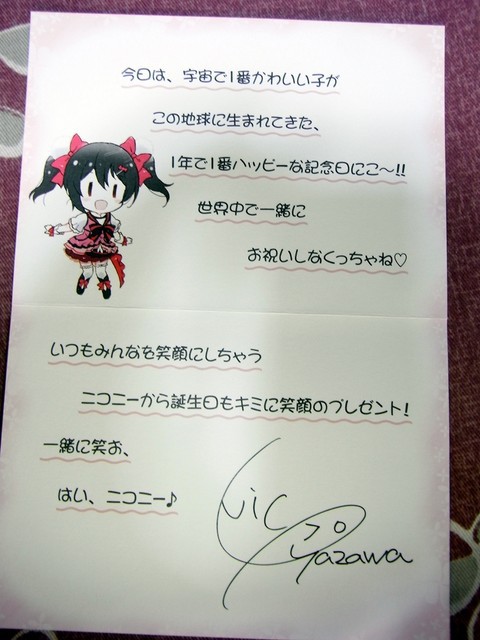 今日は、宇宙で1番かわいい子が
この地球に生まれてきた、
1年で1番ハッピーな記念日にこ〜!!
世界中で一緒に
お祝いしなくっちゃね♡
いつもみんなを笑顔にしちゃう
ニコニーから誕生日もキミに笑顔のプレゼント!
一緒に笑お、
はい、ニコニー♪
Nico
Yazawa